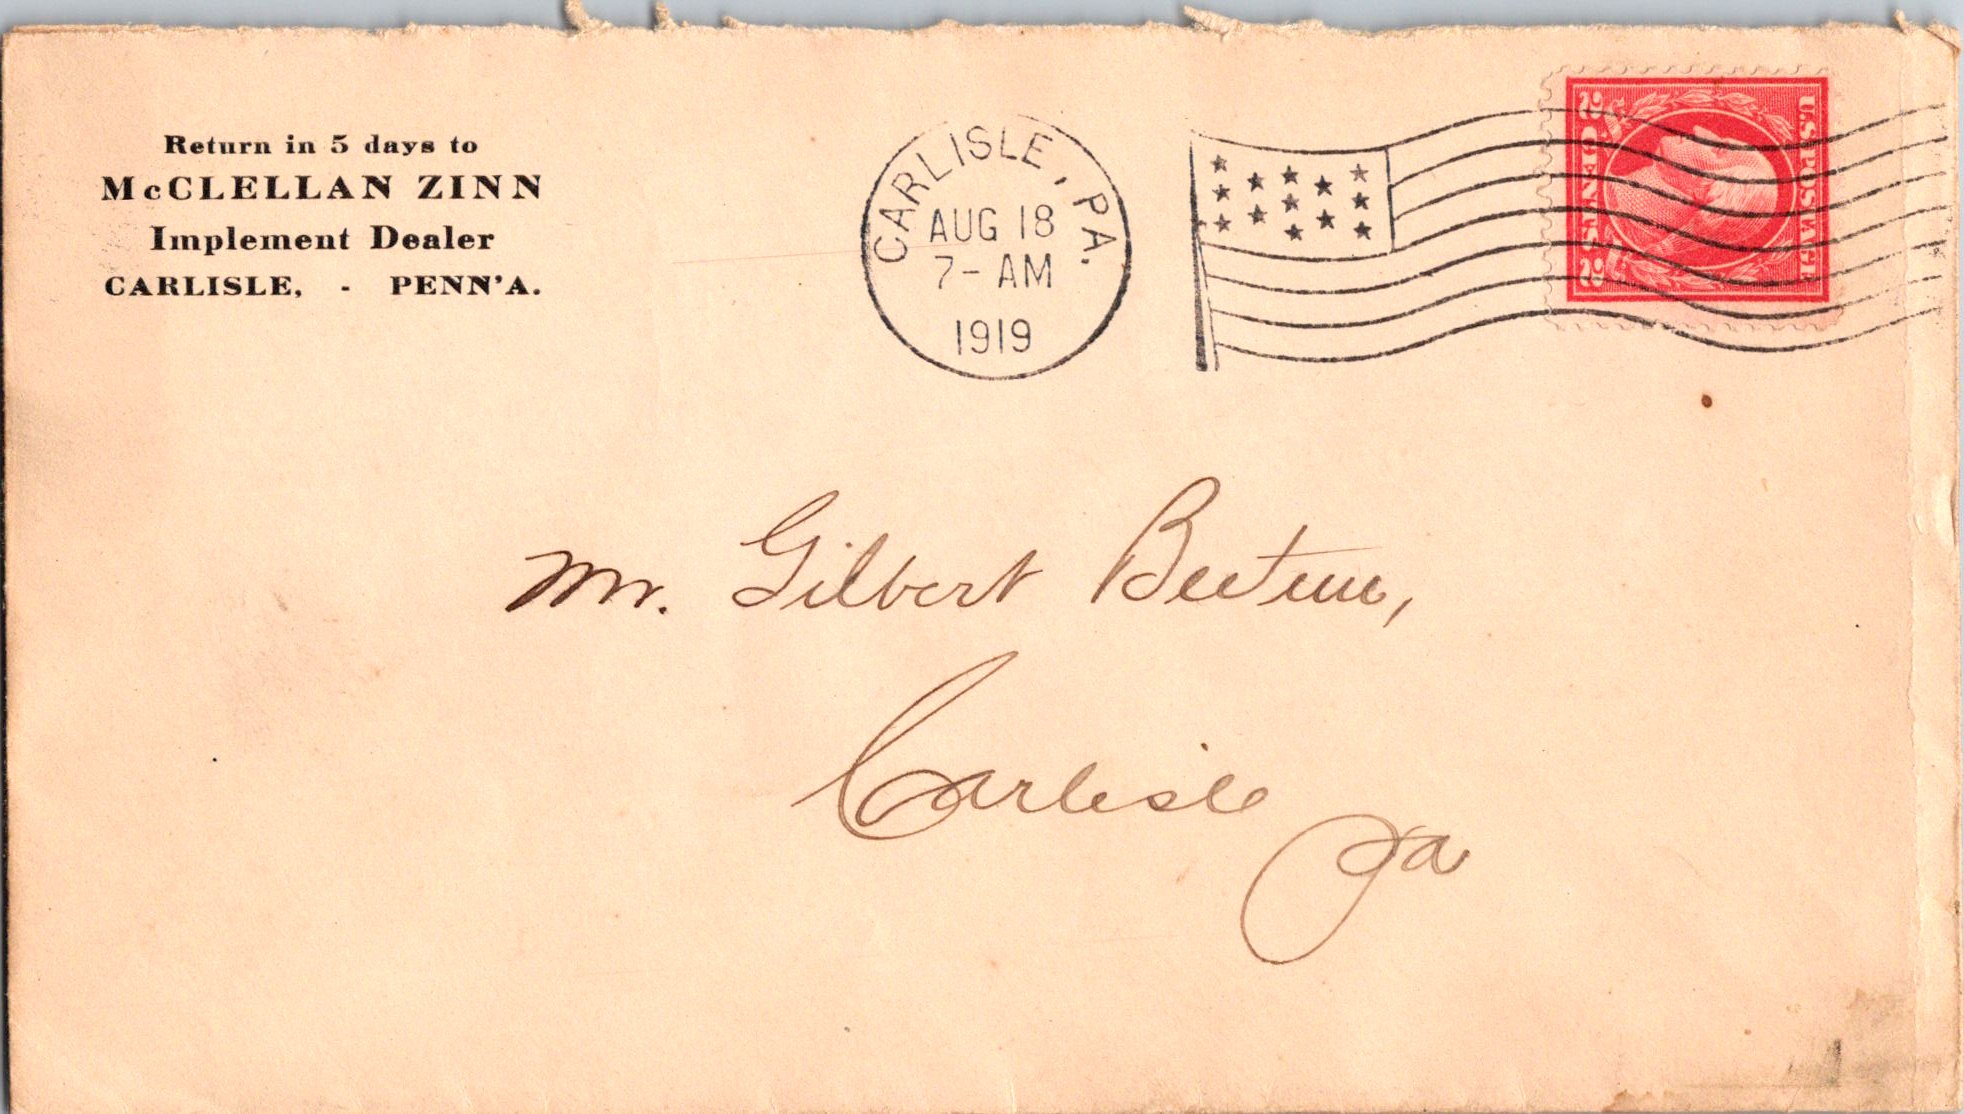 Return in 5 days to
McCLELLAN ZINN
Implement Dealer
CARLISLE, - PENN'A.
CARLISLE, PA.
AUG 18
7-AM
1919
U.S. POSTAGE
2 CENTS 2
Mr. Gilbert Beetem,
Carlisle
Pa